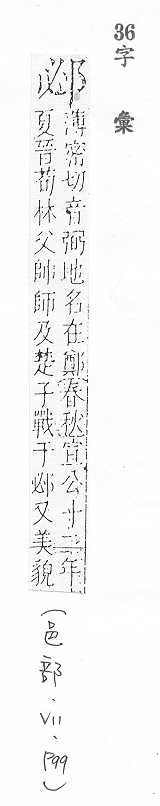 36字彙
邲
薄密切音弼地名在鄭春秋宣公十二年
夏晉荀林父帥師及楚子戰于邲又美貌
(邑部.VII.P99)